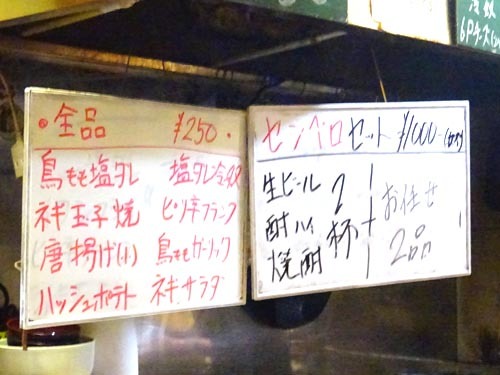 ・全品 ¥250・
鳥もも塩タレ 塩タレ冷奴
ネギ玉子焼 ピリ辛フランク
唐揚げ(小) 鳥ももガーリック
ハッシュポテト ネギサラダ
センベロセット ¥1000-
生ビール
酎ハイ
焼酎
2杯
+
お任せ
2品
6Pチーズ